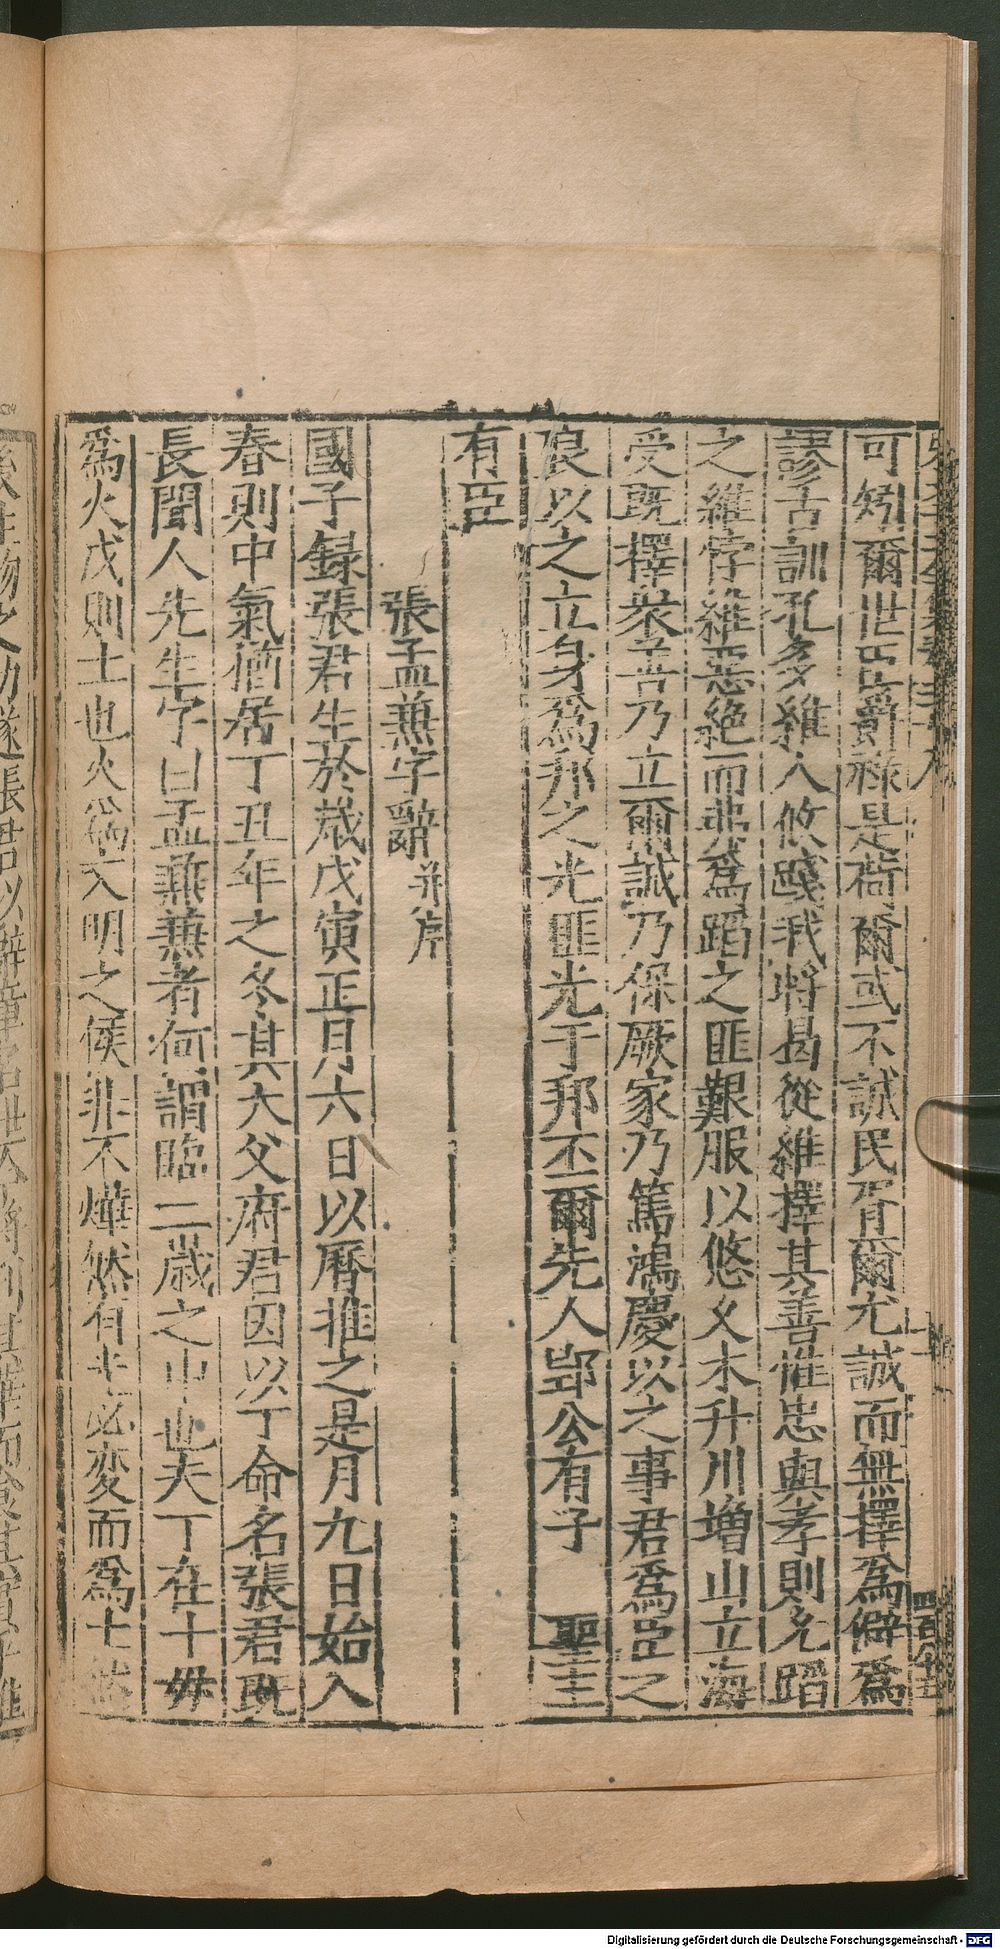 可矧爾世臣爵祿是荷爾或不誠民胥爾尤誠而無擇爲僻爲
謬古訓孔多維人攸踐我將曷從維擇其善惟忠與孝則允蹈
之維悖維惡絕而弗爲蹈之匪艱服以悠久木升川增山立海
受既擇衆善乃立爾誠乃保厥家乃篤鴻慶以之事君爲臣之
良以之立身爲邦之光匪光于邦丕爾先人郢公有子　聖主
有臣
張孟兼字辭并序
國子錄張君生於歲戊寅正月六日以曆推之是月九日始入
春則中氣猶居丁丑年之冬其大父府君因以丁命名張君既
長聞人先生字曰孟兼兼者何謂臨二歲之中也夫丁在十毋
爲火戊則土也火爲文明之候非不燁然有未必変而爲土
四百八十五
Digitalisierung gefördert durch die Deutsche Forschungsgemeinschaft - DFG